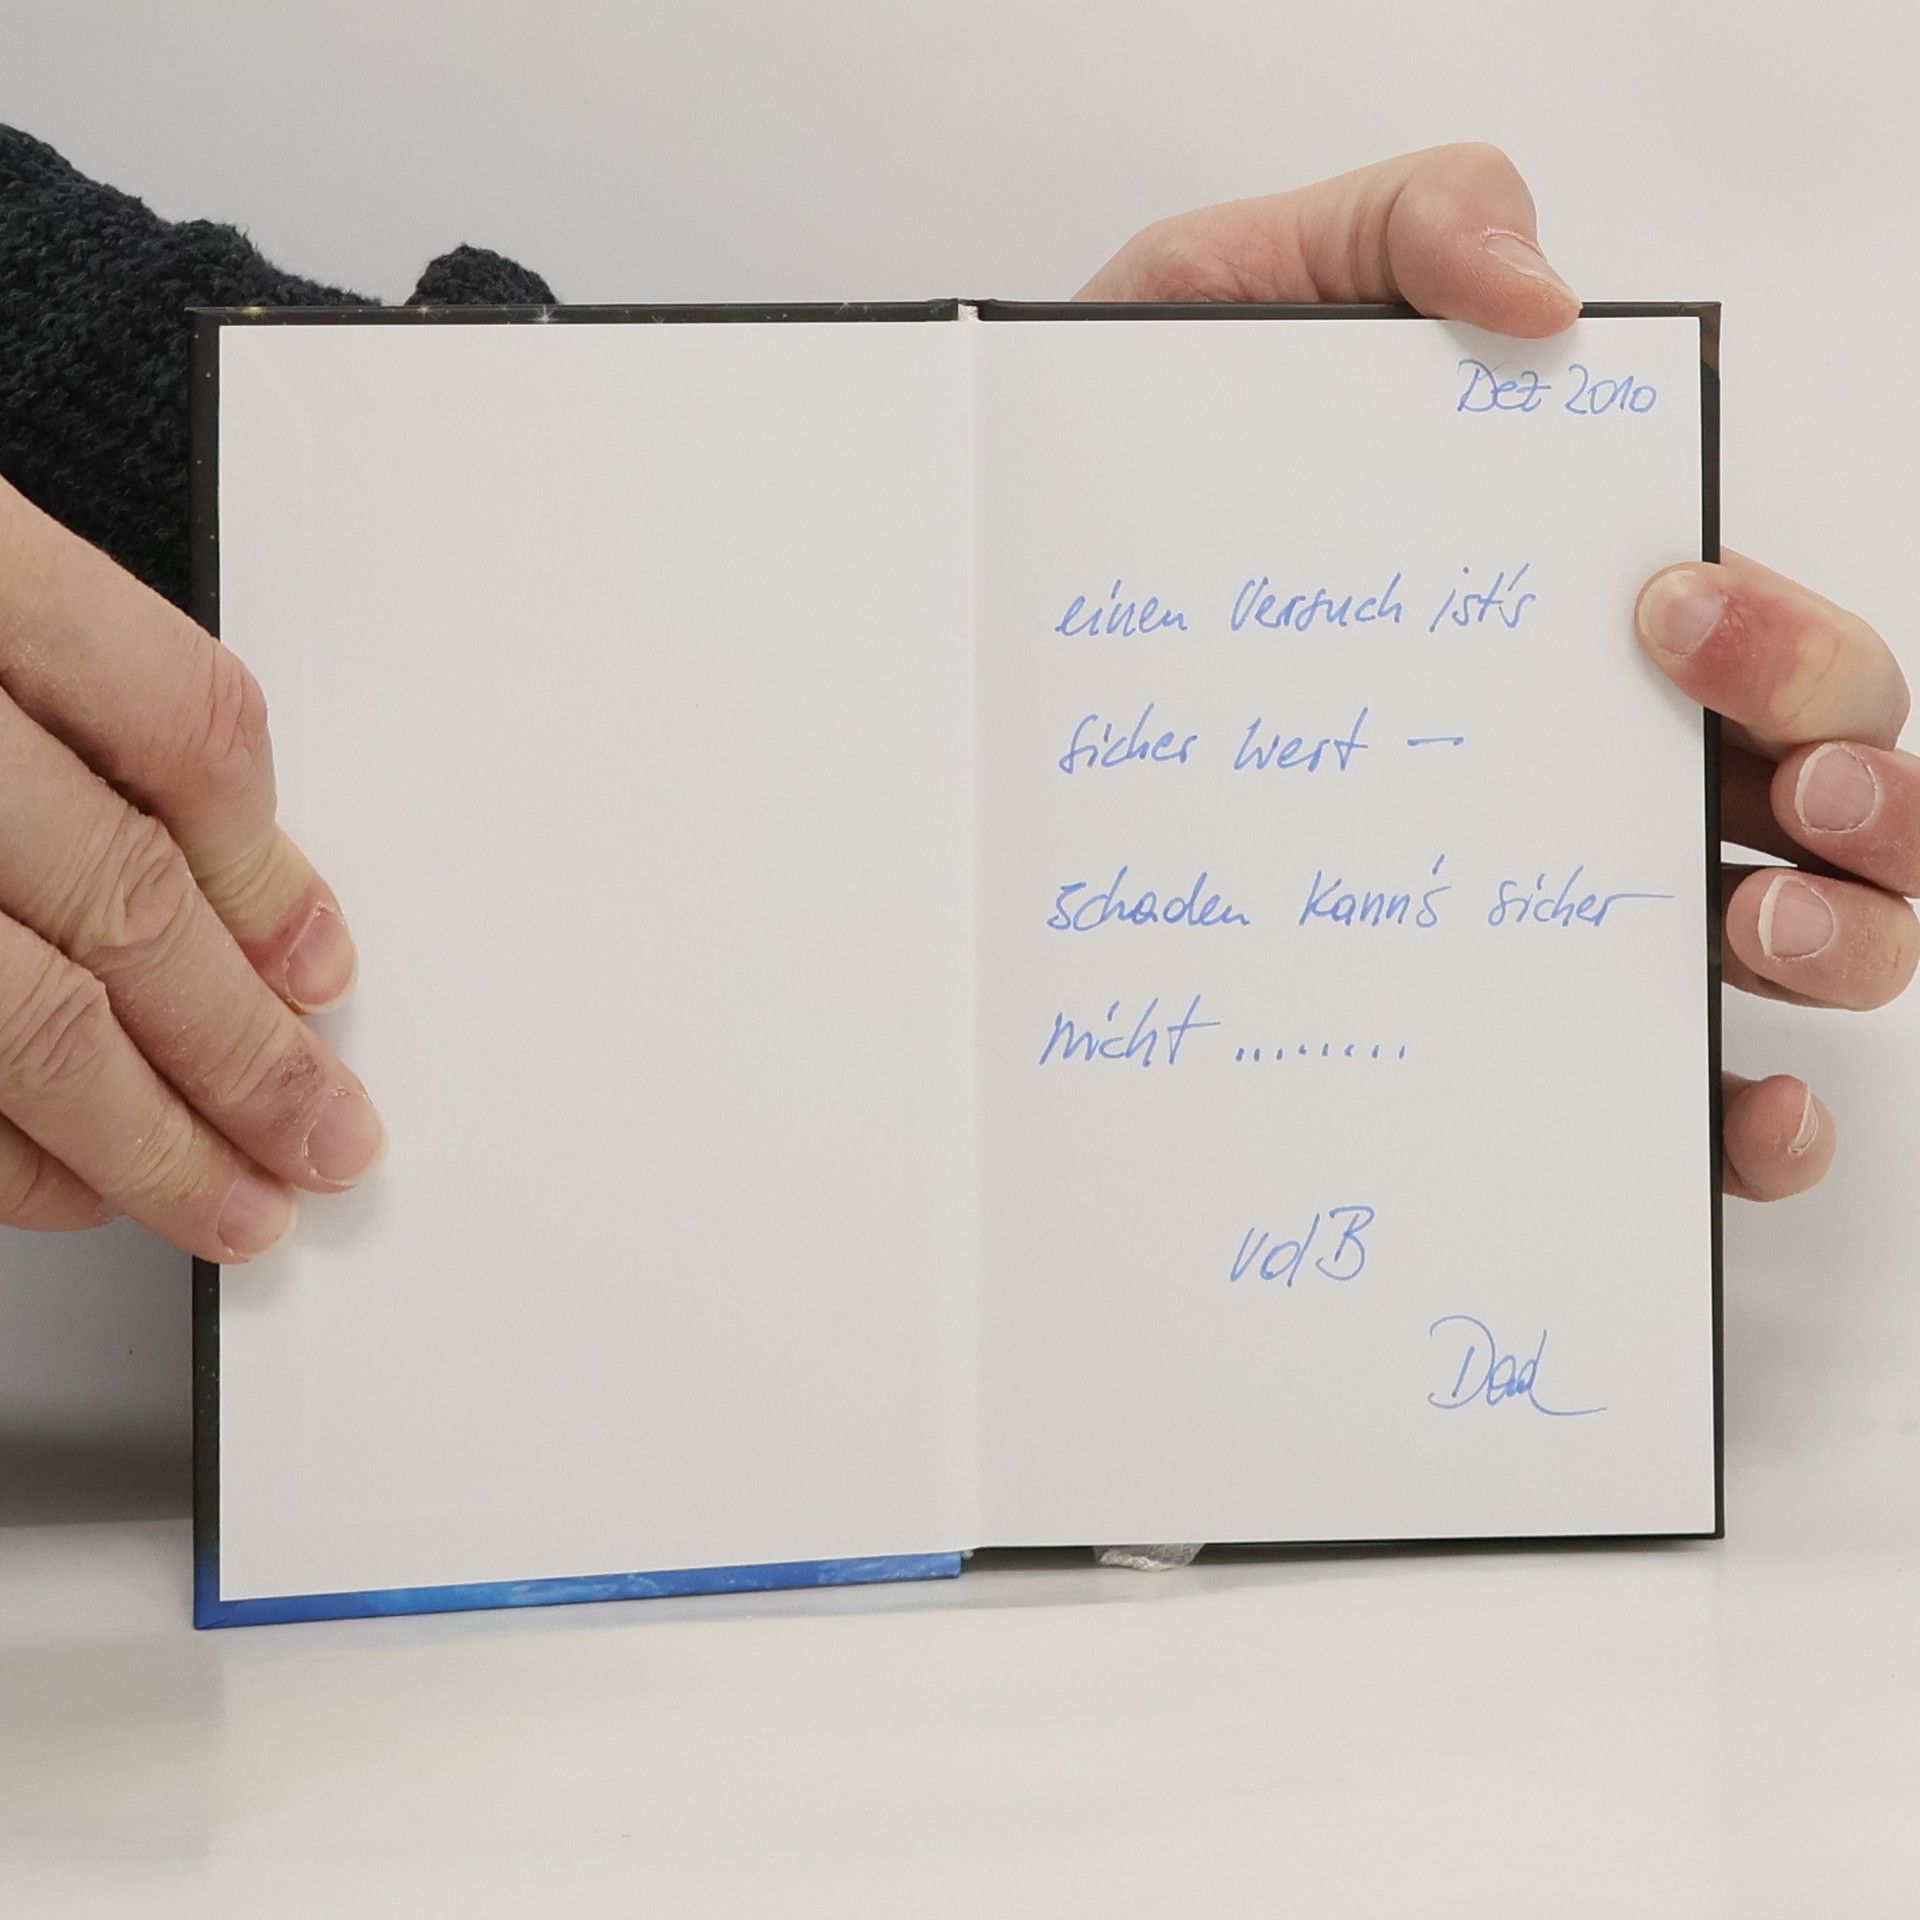 Dez 2010
einen Versuch ist's
sicher wert –
schaden kann's sicher
nicht .........
vdB
Dad